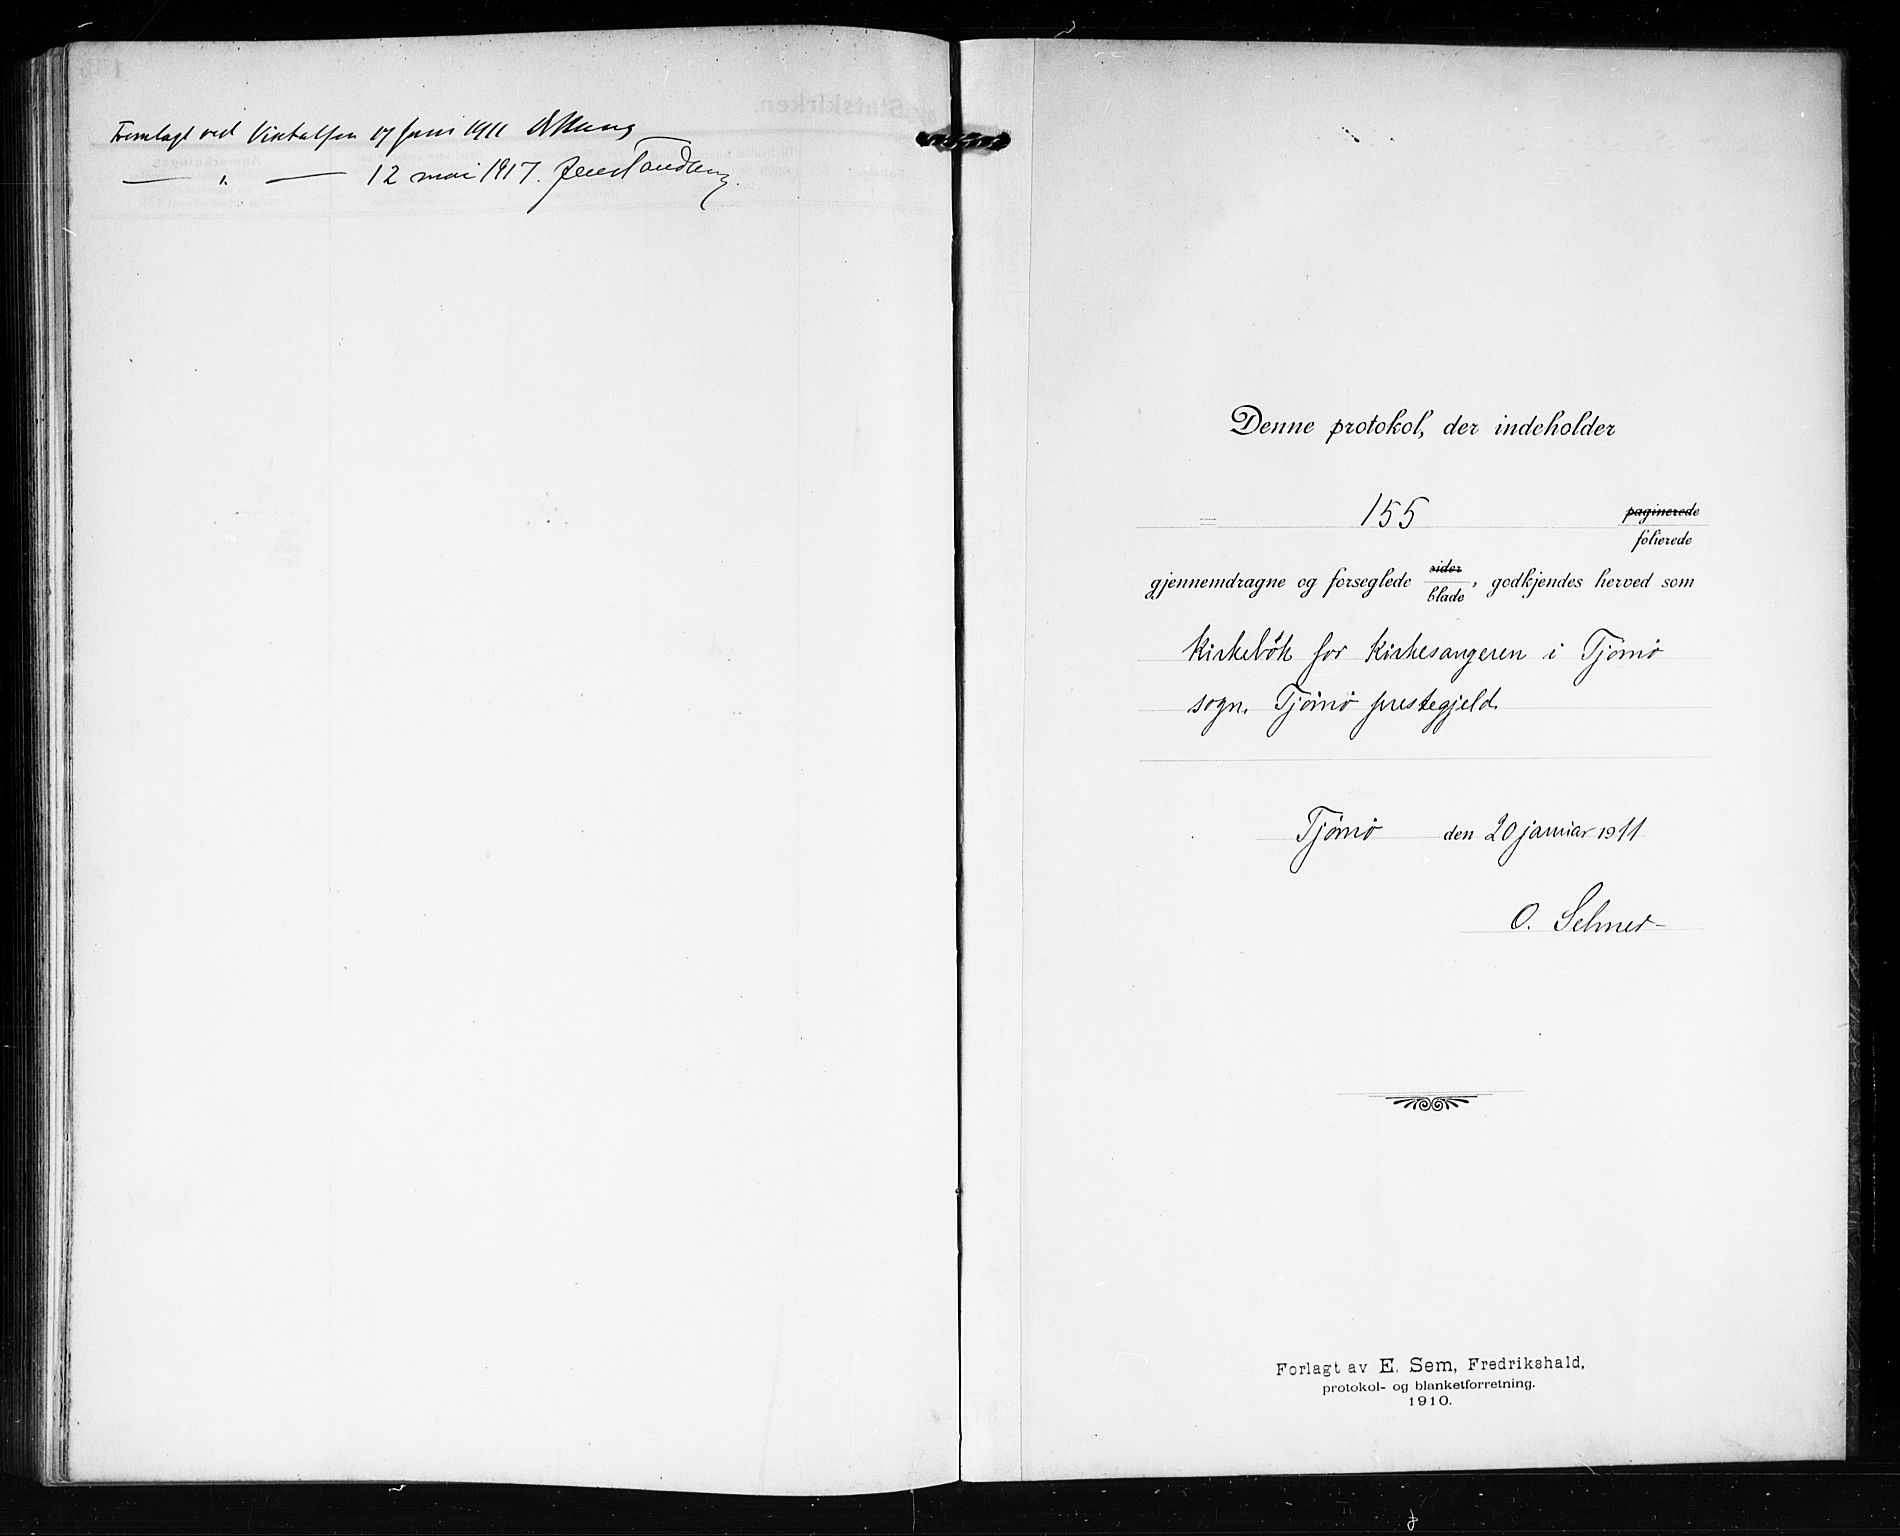 Fremlagt ved Visitatsen 17 Juni 1911
— " — 12 mai 1917. Jens Tandberg.
Denne protokol, der indeholder
= 155 paginerede
folierede
gjennemdragne og forseglede sider
blade, godkjendes herved som
Kirkebok for Kirkesangeren i Tjømø
sogn, Tjømø prestegjeld.
Tjømø den 20 januar 1911
O. Selmer
Forlagt av E. Sem, Fredrikshald,
protokol- og blanketforretning.
1910.